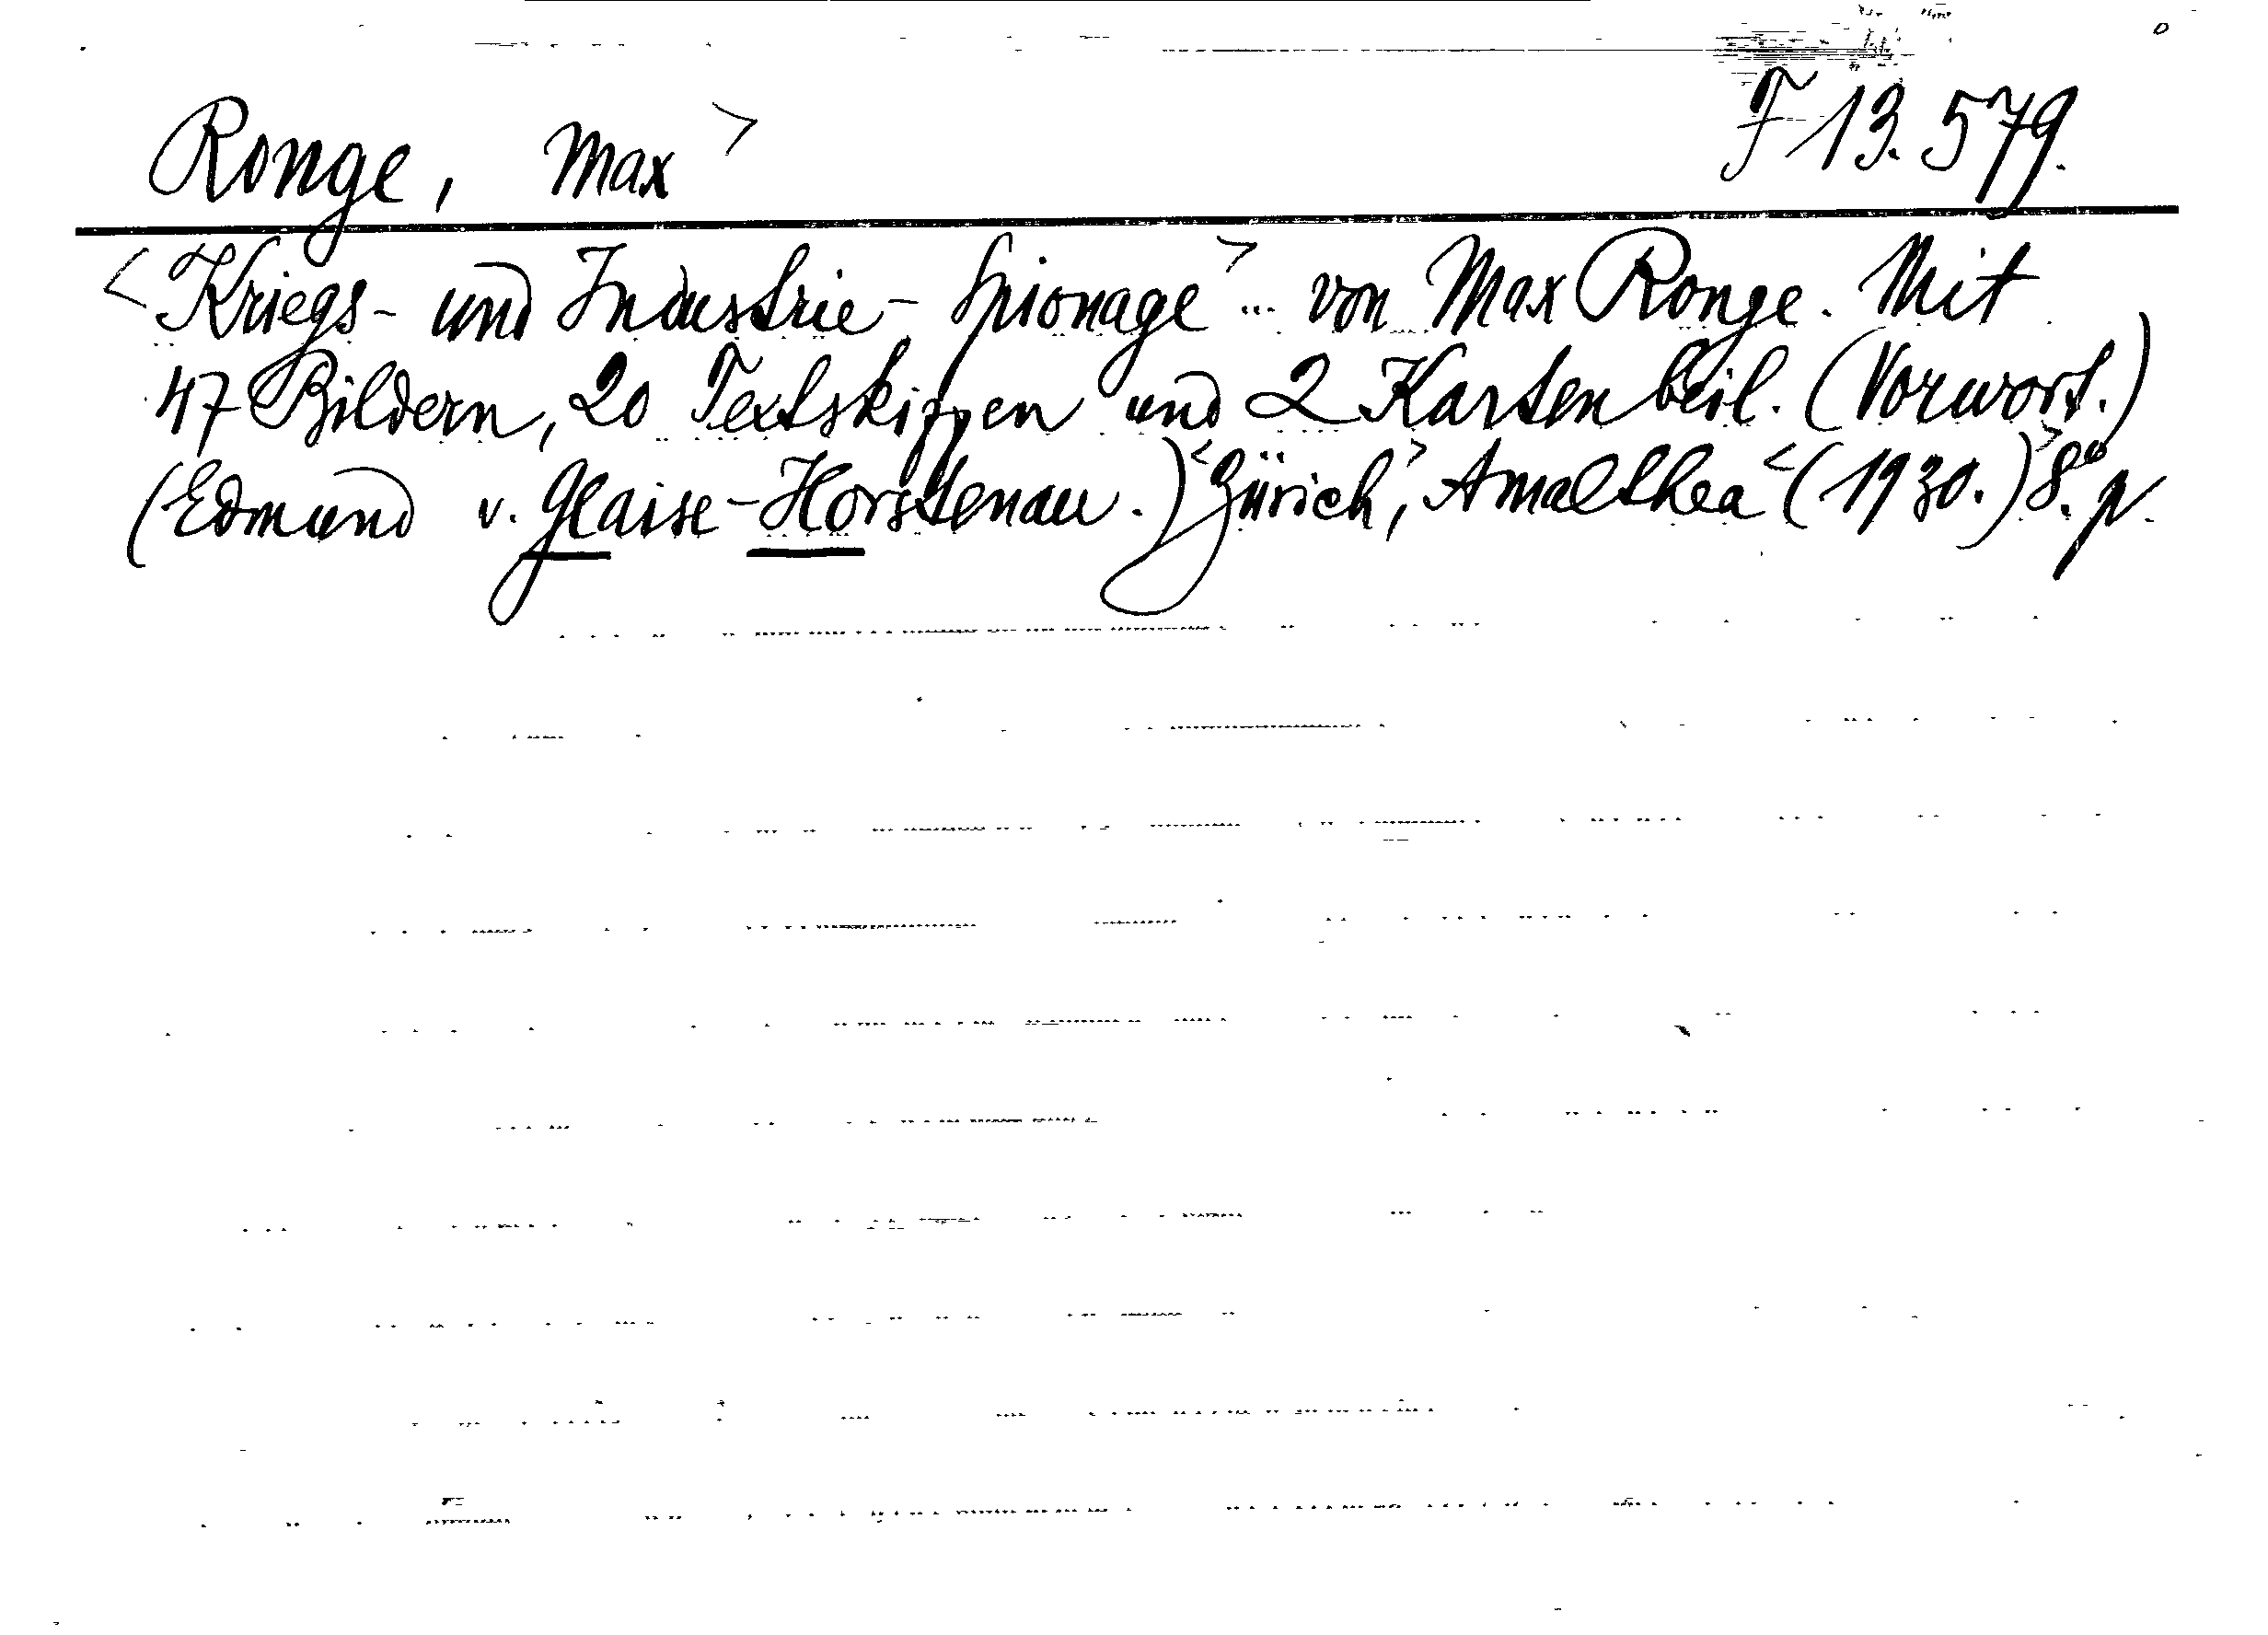 Ronge, Max> F 13.579.
<Kriegs- und Industrie-Spionage> ... von Max Ronge. Mit
47 Bildern, 20 Textskizzen und 2 Kartenbeil. (Vorwort.)
(Edmund v. Glaise-Horstenau.) <Zürich,> Amalthea <(1930.)> 8.° p.